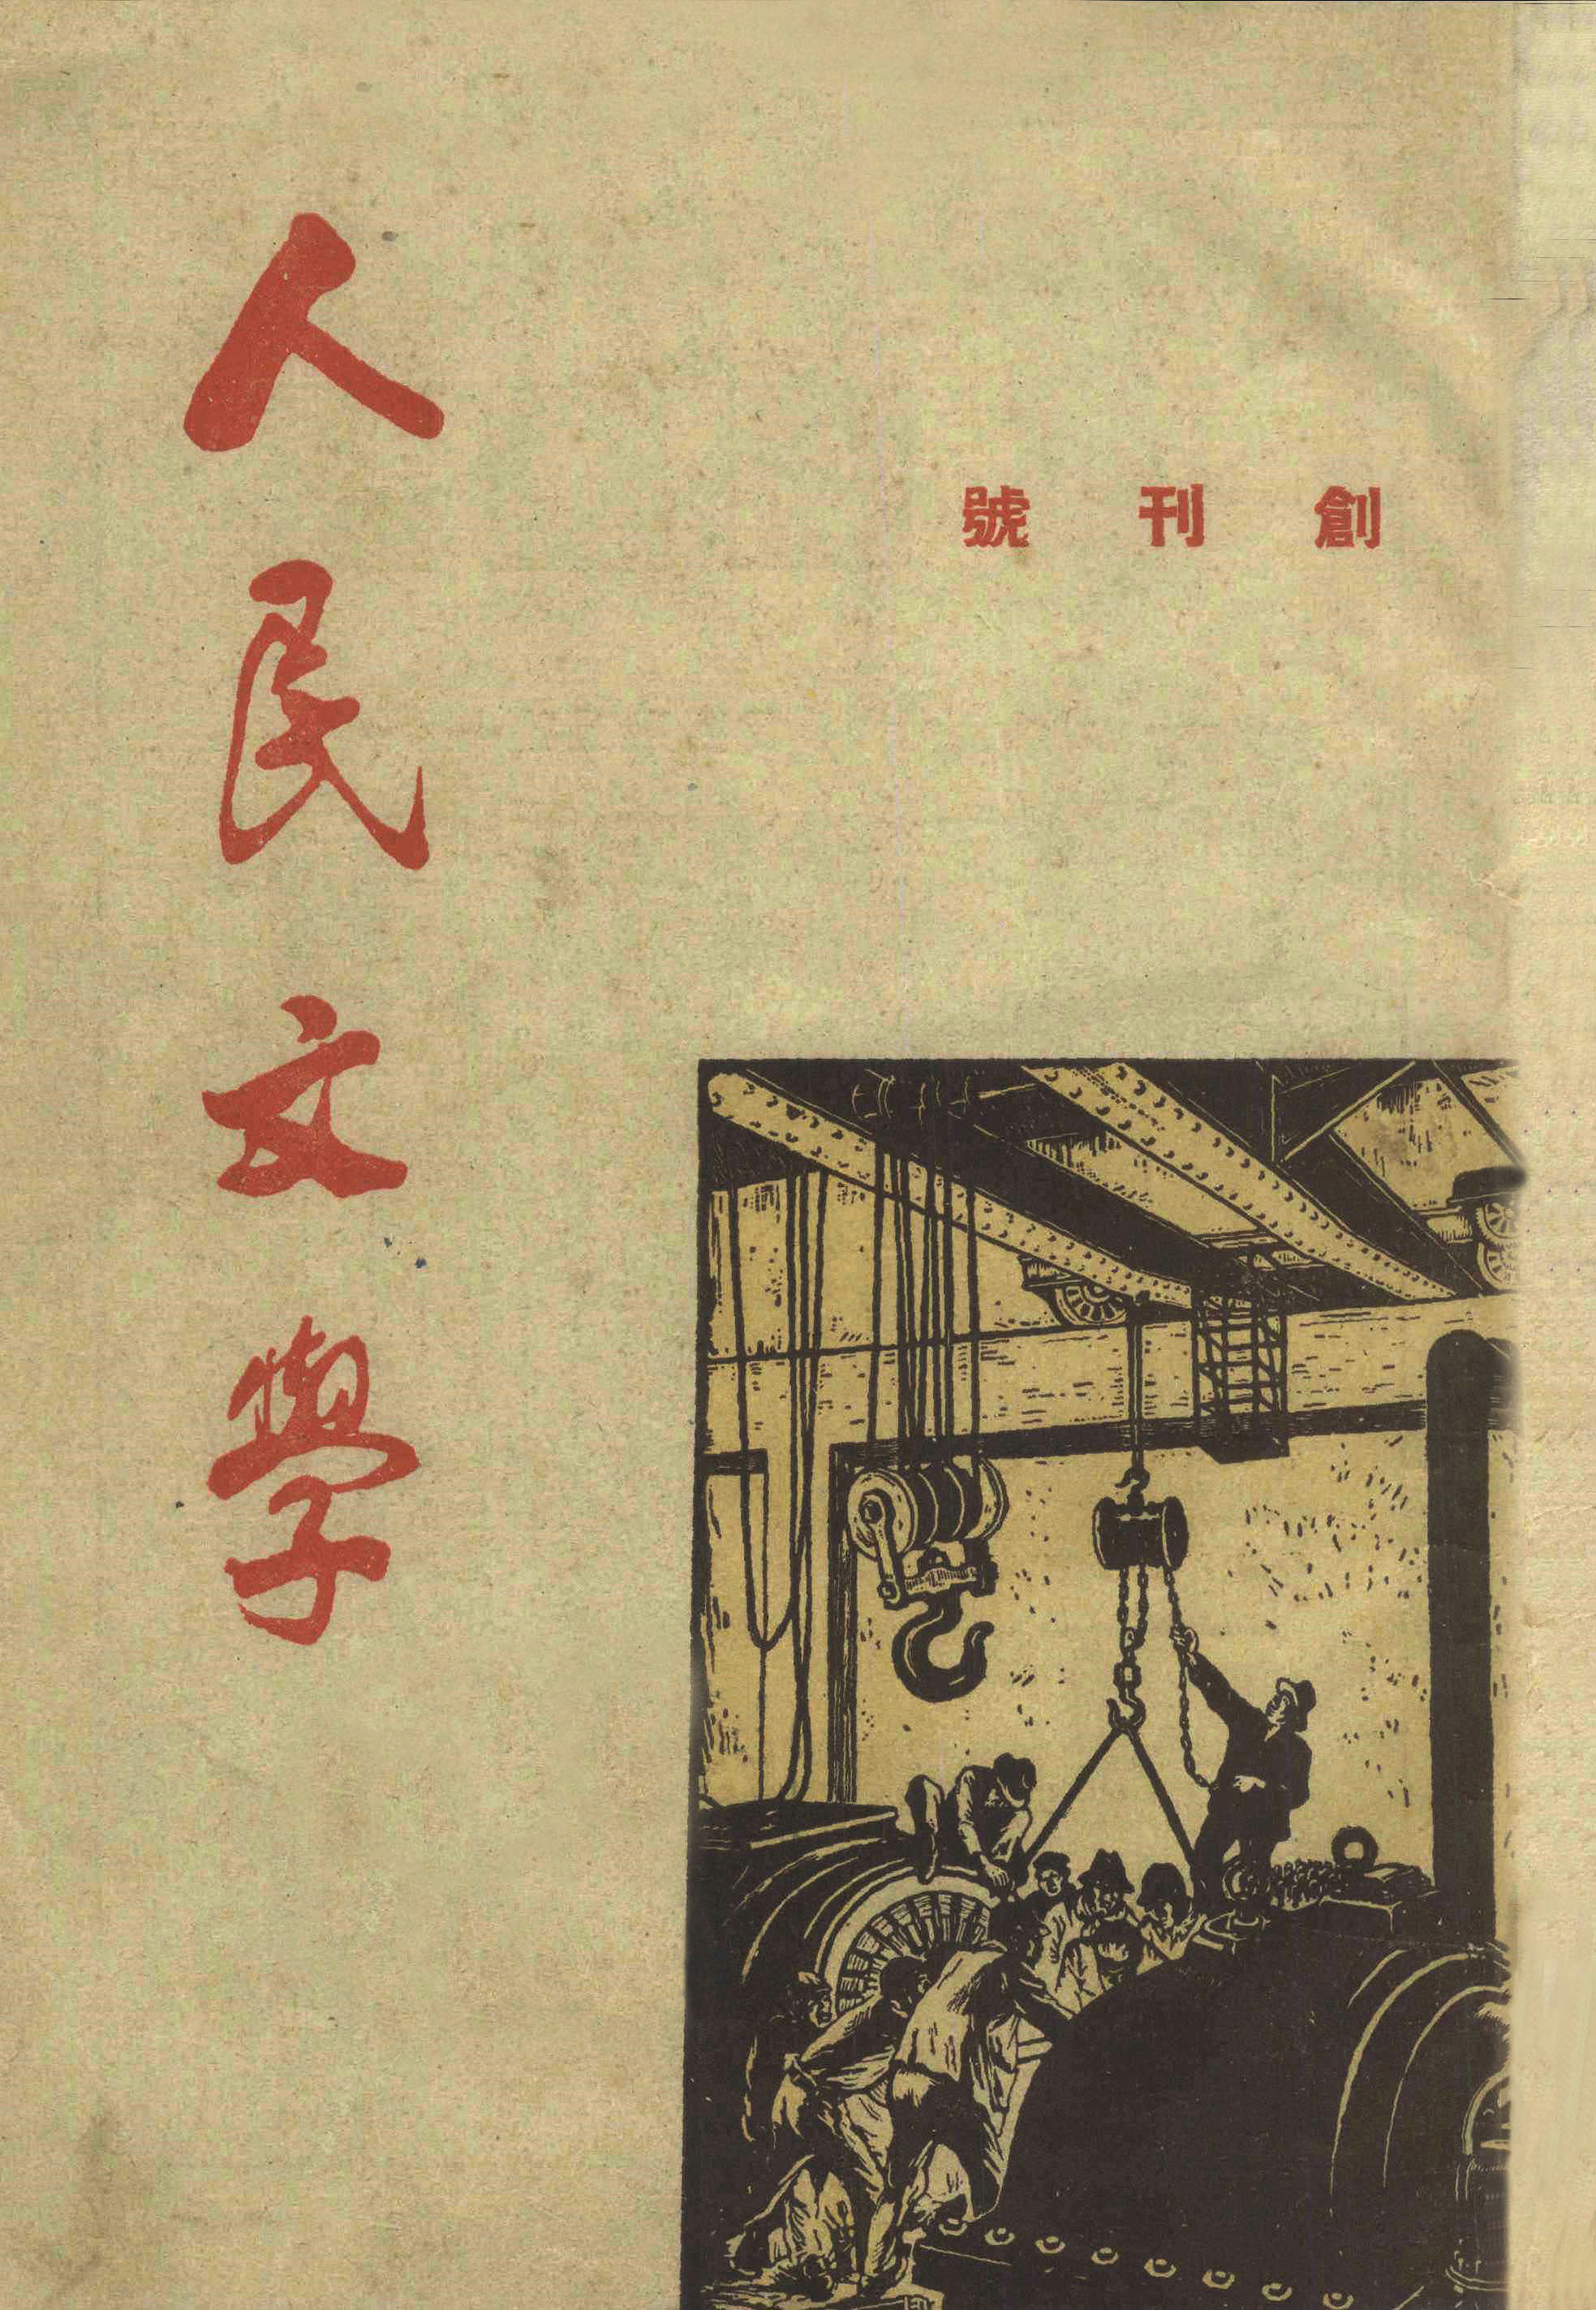 人民文學
創刊號